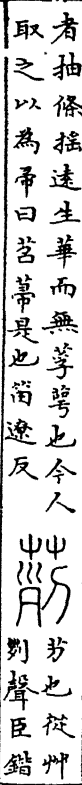 者抽條搖遠生華而無莩萼也今人
取之以為帚曰苕菷是也笛遼反
茢
芀也從艸
列聲臣鍇